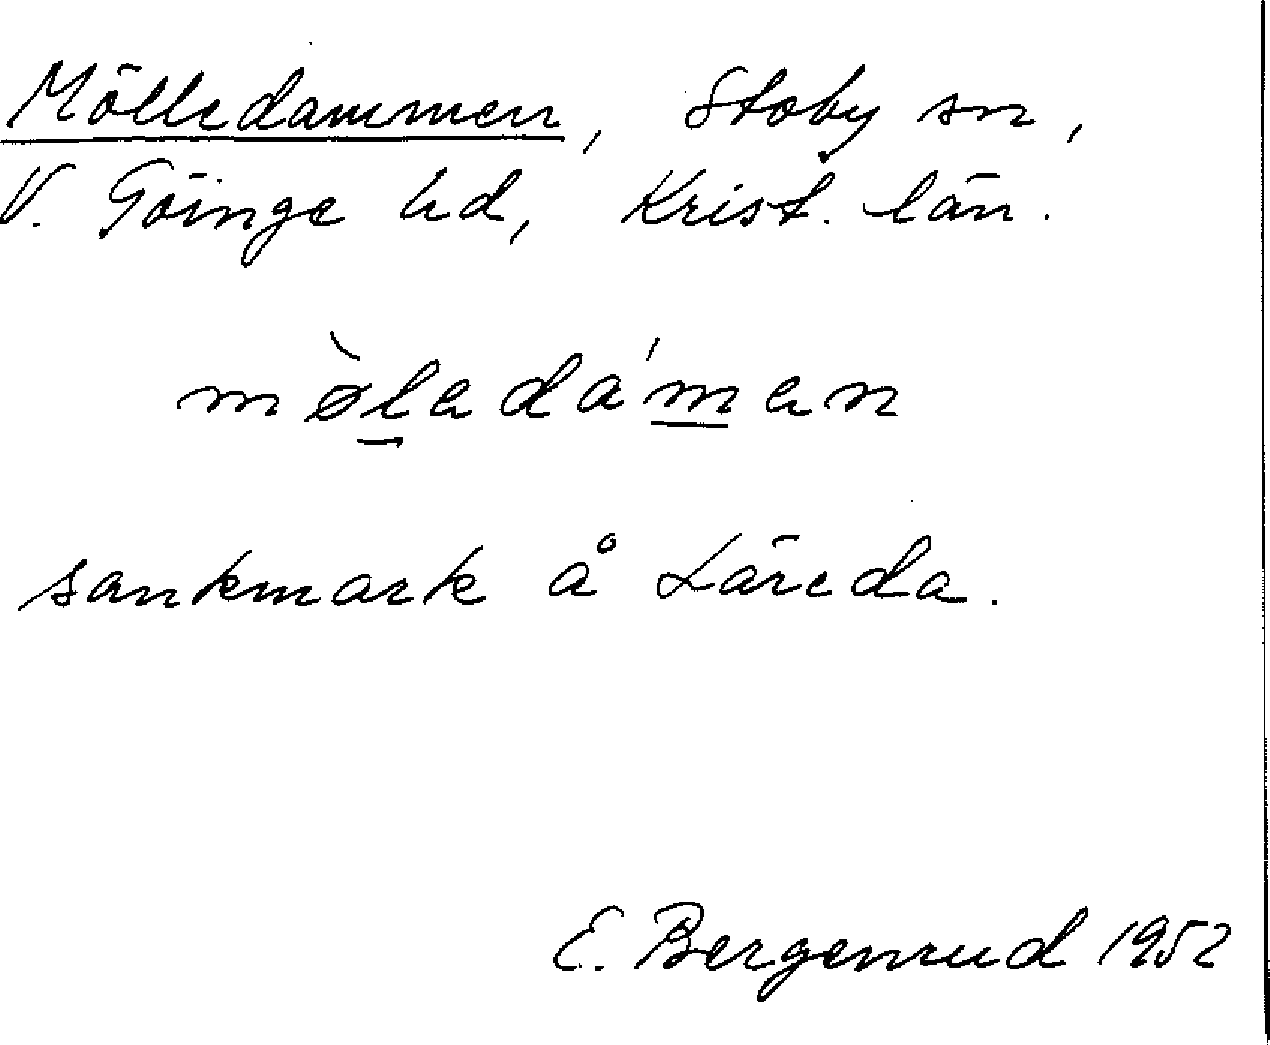 Mölledammen, Stoby sn,
V. Göinge hd, Krist. län.
mø̀ladáman
sankmark å Läreda.
E. Bergenrud 1952